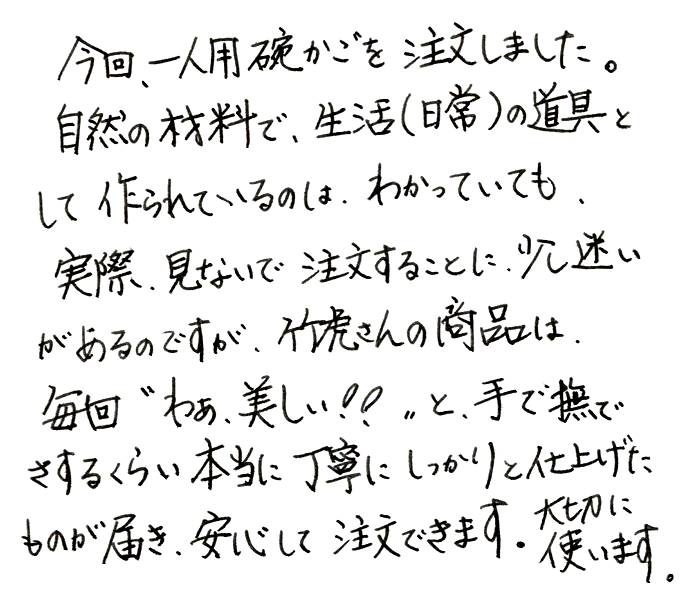 今回、一人用碗かごを注文しました。
自然の材料で、生活(日常)の道具と
して作られているのは、わかっていても、
実際、見ないで注文することに、少し迷い
があるのですが、竹虎さんの商品は、
毎回〝わぁ、美しい!!〟と、手で撫で
さするくらい本当に丁寧にしっかりと仕上げた
ものが届き、安心して注文できます。大切に
使います。